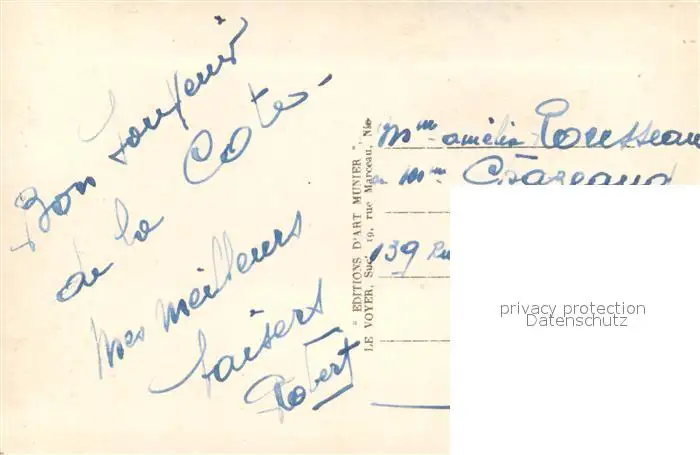 Bon souvenir
de la Côte.
Mes meilleurs
baisers
Robert
" EDITIONS D'ART MUNIER ", Nice
LE VOYER, Suc^r 19, rue Marceau, Nice
Mme amélie Rousseau
139 Ru
privacy protection
Datenschutz